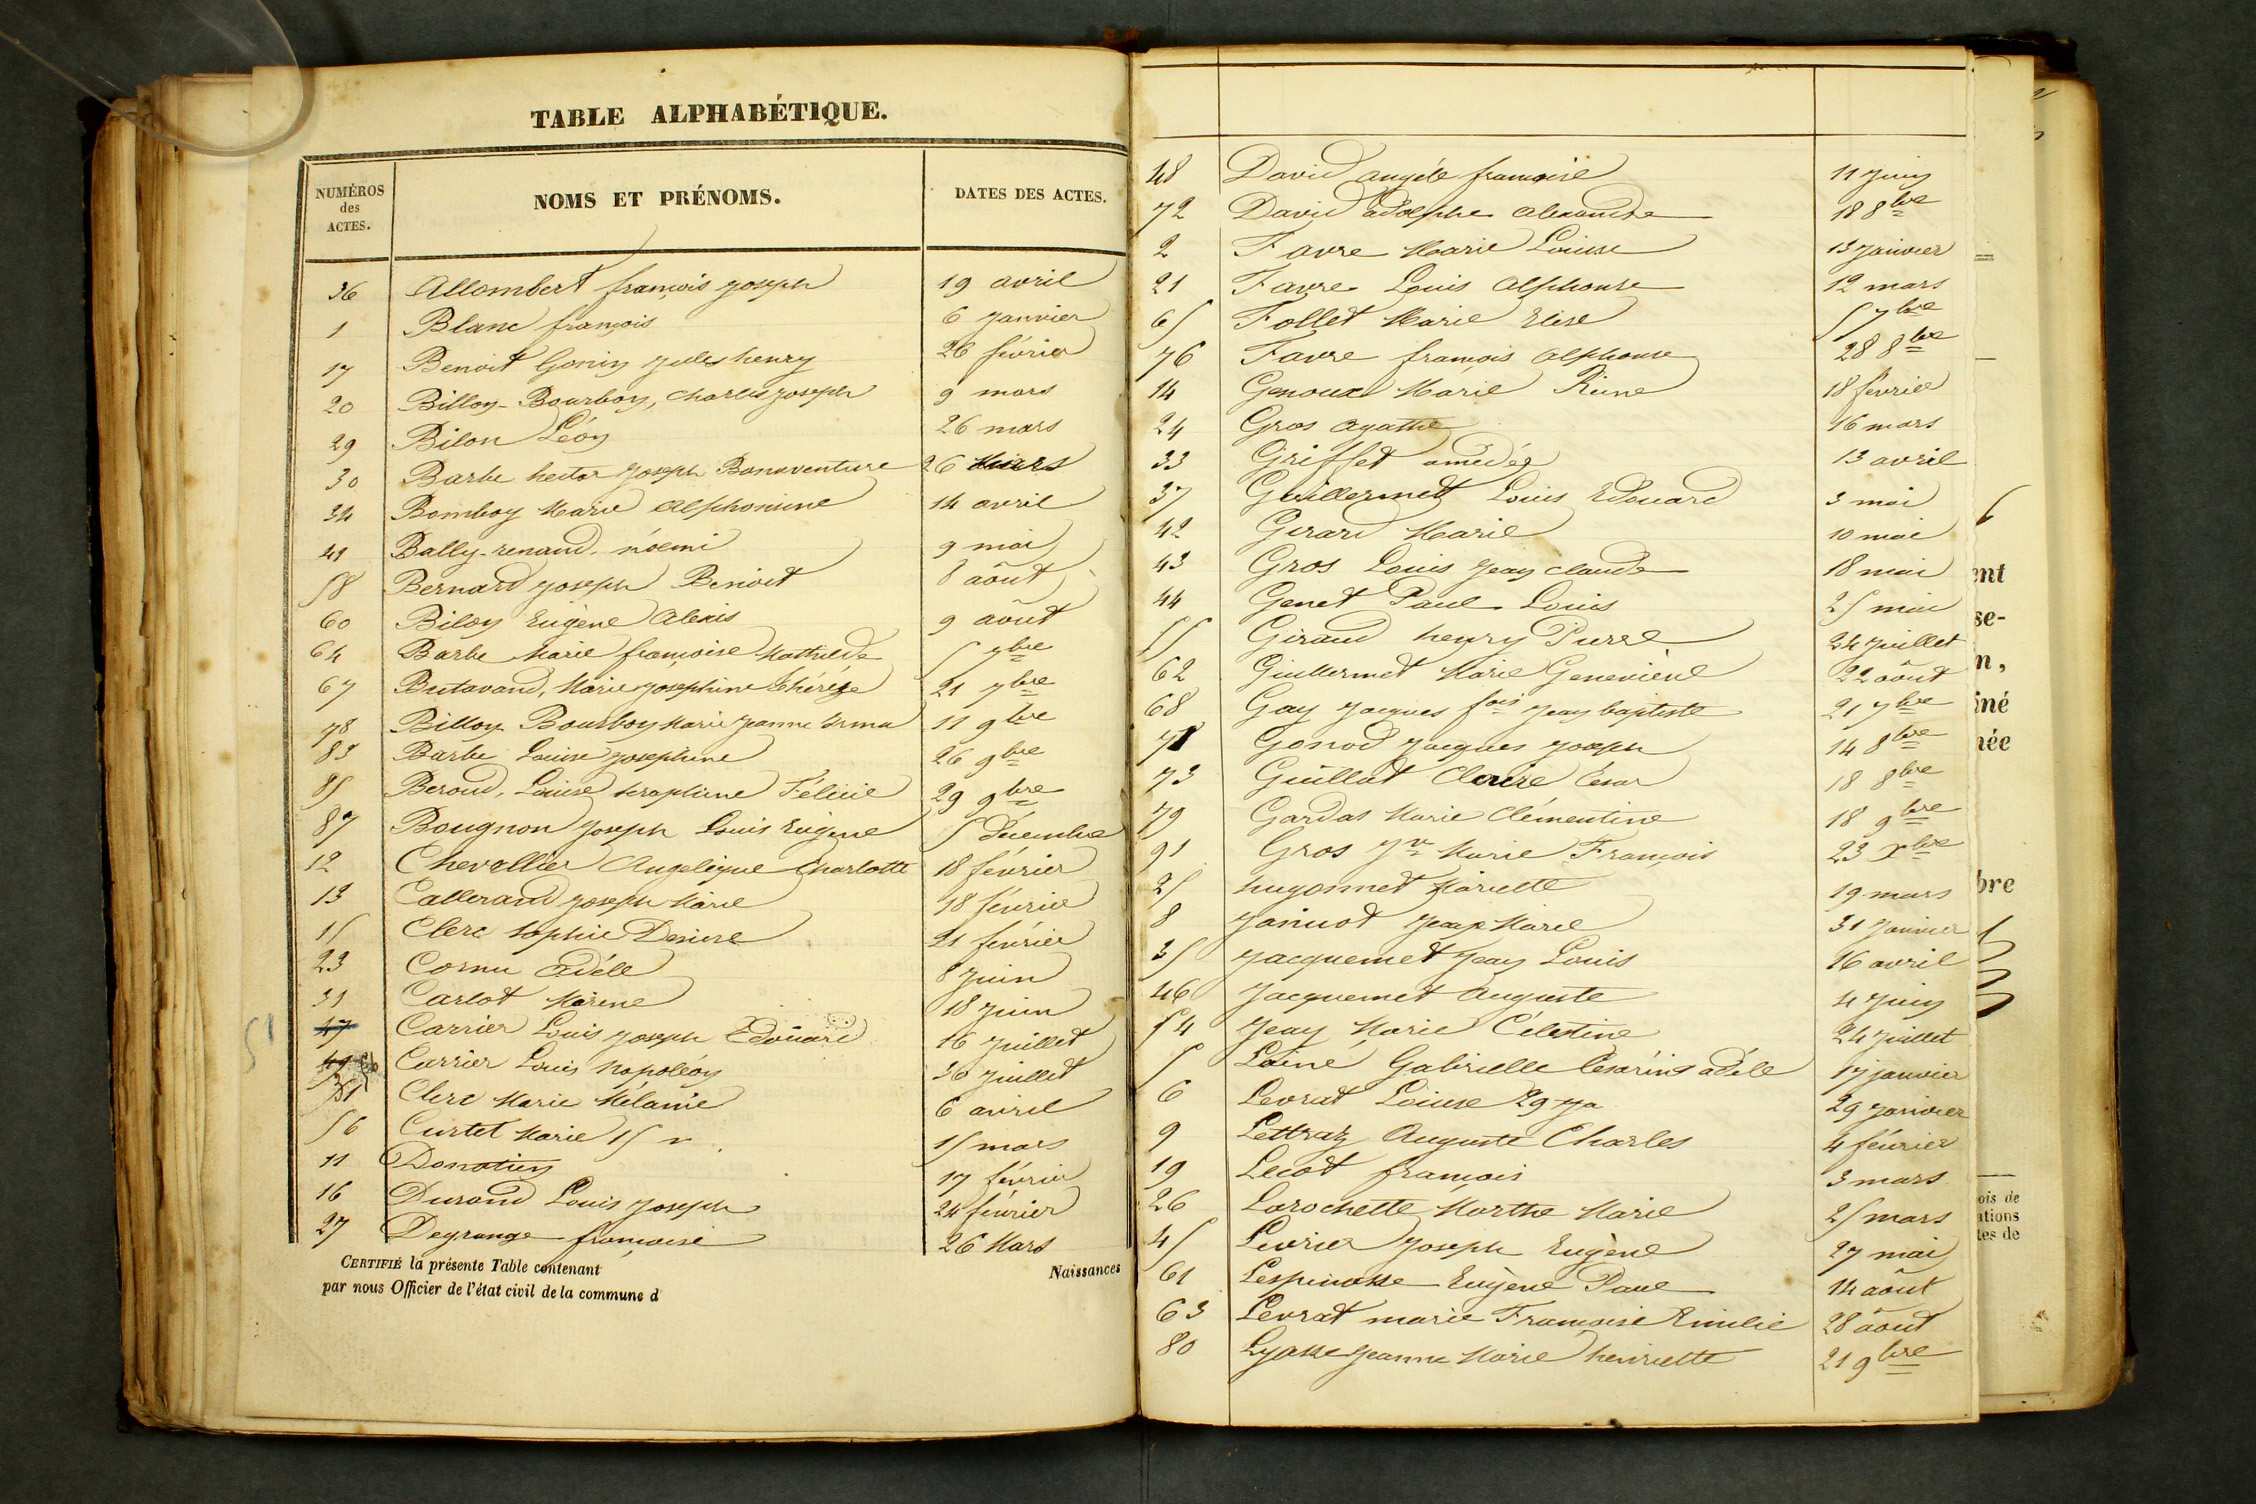 TABLE ALPHABÉTIQUE.
NUMÉROS des ACTES.
NOMS ET PRÉNOMS.
DATES DES ACTES.
36 Allombert françois joseph 19 avril
1 Blanc françois 6 janvier
17 Benoit Gonin jules henry 26 février
20 Billon-Bourbon, charles joseph 9 mars
29 Bilon Léon 26 mars
30 Barbe hector joseph Bonaventure 26 Mars
34 Bomboy Marie Alphonsine 14 avril
41 Bally-renand noemi 9 mai
58 Bernard joseph Benoit 8 août
60 Bilon Eugène Alexis 9 août
64 Barbe Marie françoise Mathilde 5 7bre
67 Butavand, Marie josephine thérèse 21 7bre
78 Billon Bourbon Marie jeanne irma 11 9bre
83 Barbe Louise josephine 26 9bre
85 Beroud, Louise seraphine Félicie 29 9bre
87 Bougnon joseph Louis Eugène 5 décembre
12 Chevallier Angelique Charlotte 18 février
13 Callerand joseph Marie 18 février
15 Clerc sophie Desirée 21 février
23 Cornu adèle 8 juin
31 Carlot Marine 18 juin
47 Carrier Louis joseph Edouard 16 juillet
51
Carrier Louis Napoléon 30 juillet
Clerc Marie Mélanie 6 avril
56 Curtet Marie 15 15 mars
11 Donatien 17 février
16 Durand Louis joseph 24 février
27 Degrange françoise 26 Mars
CERTIFIÉ la présente Table contenant Naissances
par nous Officier de l'état civil de la commune d
48 David angèle françoise 11 juin
72 David adolphe alexandre 18 8bre
2 Favre Marie Louise 13 janvier
21 Favre Louis Alphonse 12 mars
65 Follet Marie Elise 5 7bre
76 Favre françois Alphonse 28 8bre
14 Genoux Marie Reine 18 février
24 Gros agathe 16 mars
33 Griffet amédée 13 avril
37 Guillermet Louis Edouard 3 mai
42 Girard Marie 10 mai
43 Gros Louis jean claude 18 mai
44 Genet Paul Louis 25 mai
55 Giraud henry Pierre 24 juillet
62 Guillermet Marie Geneviève 22 août
68 Gay jacques fois jean baptiste 21 7bre
71 Gonod jacques joseph 14 8bre
73 Guillot Claire César 18 8bre
79 Gardas Marie Clémentine 18 9bre
91 Gros jn Marie François 23 Xbre
25 hugonnet Mariette 19 mars
8 janinot jean Marie 31 janvier
35 jacquemet jean Louis 16 avril
46 jacquemet Auguste 4 juin
54 jeay Marie Célestine 24 juillet
5 Lainé Gabrielle Césarine adèle 17 janvier
6 Levrat Louise 29 ja 29 janvier
9 Lettraz Auguste Charles 4 février
19 Lecot françois 3 mars
26 Larochette Marthe Marie 25 mars
45 Levrier joseph Eugène 27 mai
61 Lespinasse Eugène Paul 14 août
63 Levrat marie Françoise Emilie 28 août
80 Lyasse jeanne Marie henriette 21 9bre
ent
se-
n,
iné
née
bre
ois de
ations
tes de